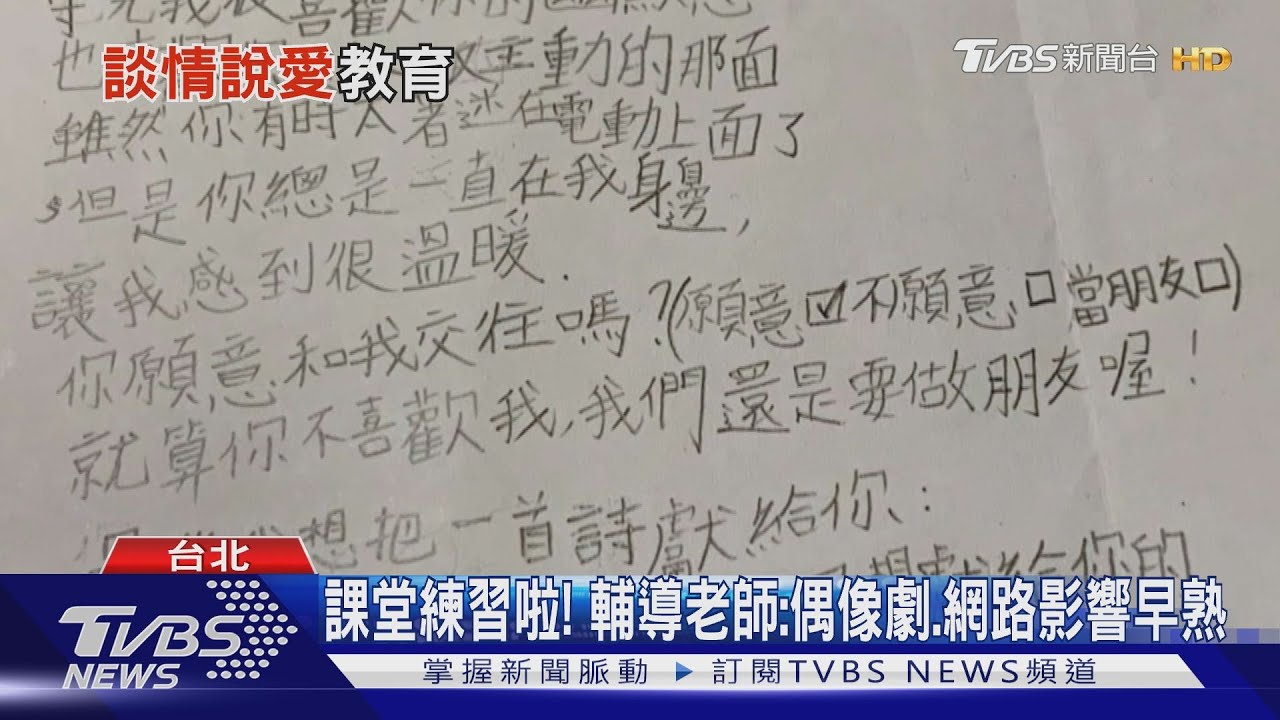 我很喜歡你的幽默感
談情說愛教育
TVBS新聞台HD
也 主動的那面
雖然你有時太著迷在電動上面了
,但是你總是一直在我身邊,
讓我感到很溫暖.
你願意和我交往嗎?(願意☑不願意□當朋友□)
就算你不喜歡我,我們還是要做朋友喔!
想把一首詩獻給你:
獻給你的
台北
TVBS NEWS
課堂練習啦! 輔導老師:偶像劇.網路影響早熟
掌握新聞脈動 ▶ 訂閱TVBS NEWS頻道